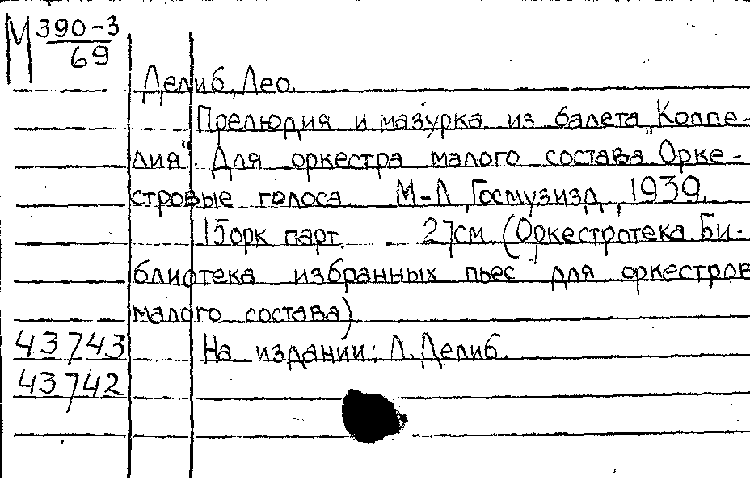 М 390-3
69
Делиб, Лео.
Прелюдия и мазурка из балета "Коппе-
лия". Для оркестра малого состава. Орке-
стровые голоса. М-Л, Госмузизд, 1939.
15 орк. парт. 27 см. (Оркестротека. Би-
блиотека избранных пьес для оркестров
малого состава)
43743 На издании: Л. Делиб.
43742